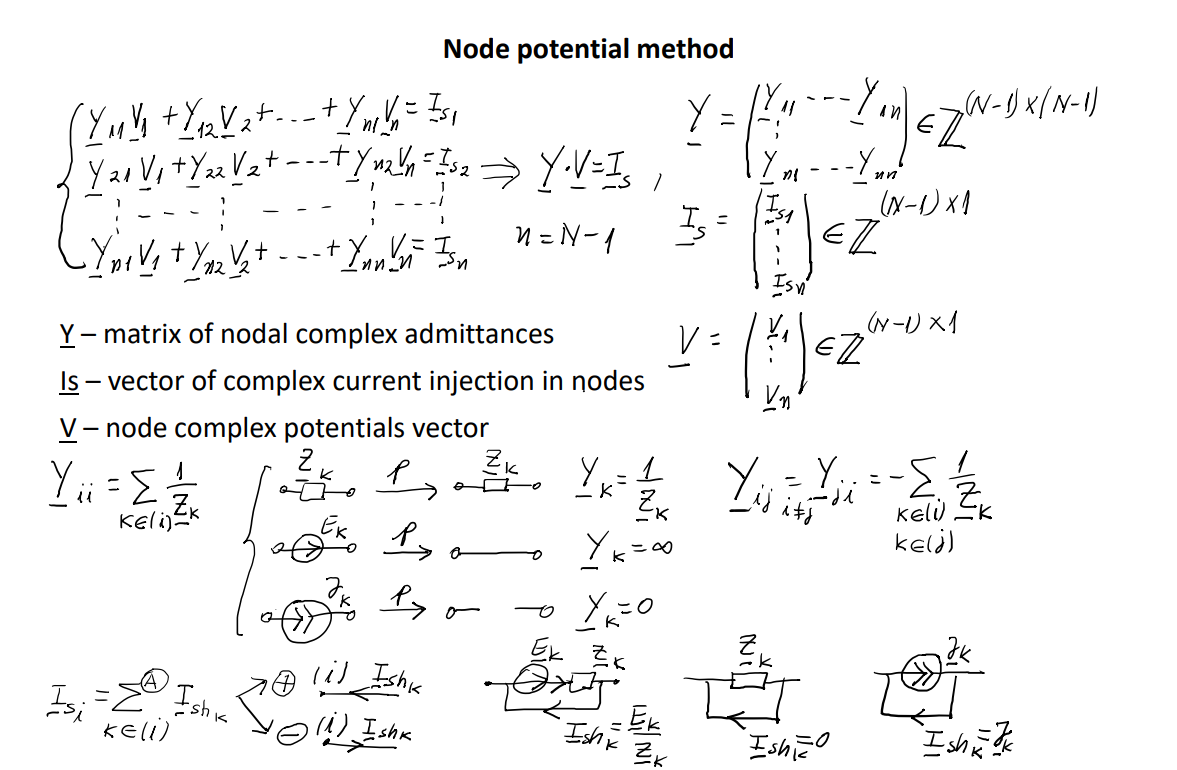 Node potential method
Y̲₁₁V̲₁ + Y̲₁₂V̲₂ + ... + Y̲ₙ₁V̲ₙ = I̲s₁
Y̲₂₁V̲₁ + Y̲₂₂V̲₂ + ... + Y̲ₙ₂V̲ₙ = I̲s₂ ⇒ Y̲·V̲ = I̲s ,
Y̲ₙ₁V̲₁ + Y̲ₙ₂V̲₂ + ... + Y̲ₙₙV̲ₙ = I̲sₙ
n = N-1
Y̲ = (Y̲₁₁ ... Y̲₁ₙ
Y̲ₙ₁ ... Y̲ₙₙ) ∈ ℤ^(N-1)×(N-1)
I̲s = (I̲s₁ ⋮ I̲sₙ) ∈ ℤ^(N-1)×1
Y̲ – matrix of nodal complex admittances
V̲ = (V̲₁ ⋮ V̲ₙ) ∈ ℤ^(N-1)×1
I̲s̲ – vector of complex current injection in nodes
V̲ – node complex potentials vector
Y̲ᵢᵢ = Σ_{k∈(i)} 1/Z̲ₖ
Z̲ₖ P → Z̲ₖ Y̲ₖ = 1/Z̲ₖ
E̲ₖ P → Y̲ₖ = ∞
Jₖ P → Y̲ₖ = 0
Y̲ᵢⱼ =_{i≠j} Y̲ⱼᵢ = -Σ_{k∈(i) k∈(j)} 1/Z̲ₖ
I̲sᵢ = Σ^(A)_{k∈(i)} I̲shₖ
⊕ (i) I̲shₖ
⊖ (i) I̲shₖ
E̲ₖ Z̲ₖ
I̲shₖ = E̲ₖ/Z̲ₖ
Z̲ₖ
I̲shₖ = 0
J̲ₖ
I̲shₖ = J̲ₖ